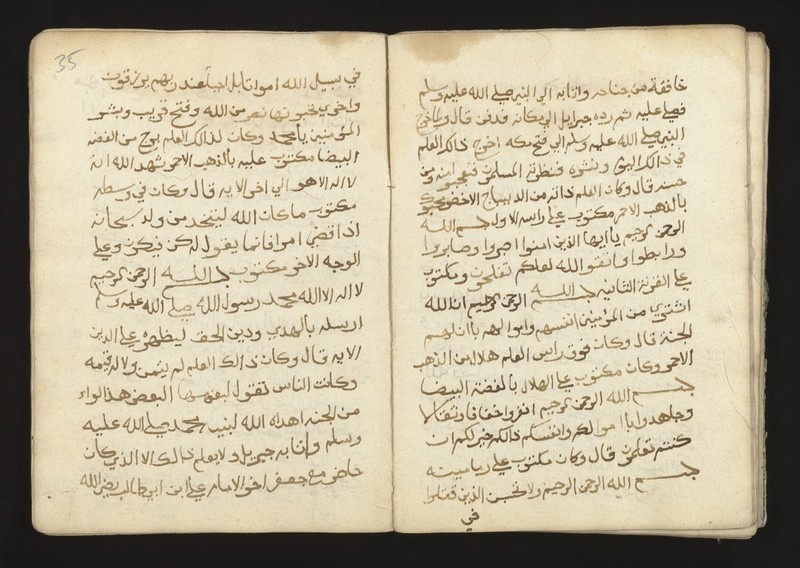 خافقة من جناحه واتا به الى النبي صلى الله عليه وسلم
فصلى عليه ثم رده جبرايل الى مكانه قال ولما خرج
النبي صلى الله عليه وسلم الى فتح مكه اخرج ذالك العلم
في ذالك اليوم ونشره فنظرته المسلمين فتعجبوا منه ومن
حسنه قال وكان العلم ذاته من الديباج الاخضر
بالذهب الاحمر مكتوب على راسه الاوله بسم الله
الرحمن الرحيم ياايها الذين امنوا اصبروا وصابروا
ورابطوا واتقوا الله لعلكم تفلحون ومكتوب
على القرنة الثانيه بسم الله الرحمن الرحيم ان الله
اشترى من المؤمنين انفسهم واموالهم بأن لهم
الجنة قال وكان فوق راس العلم هلالا من الذهب
الاحمر وكان مكتوب على الهلال بالفضة البيضا
بسم الله الرحمن الرحيم انفروا خفافا وثقالا
وجاهدوا باموالكم وانفسكم ذالكم خير لكم ان
كنتم تعلمون قال وكان مكتوب على
بسم الله الرحمن الرحيم ولا تحسبن الذين قتلوا
في
35
في سبيل الله امواتا بل احياً عند ربهم يرزقون
واخرى تحبونها نصر من الله وفتح قريب وبشر
المؤمنين يا محمد وكان لذالك العلم من الفضه
البيضا مكتوب عليه بالذهب الاحمر شهد الله انه
لا اله الا هو الى اخر الايه قال وكان في وسطه
مكتوب ما كان الله ليتخذ من ولد سبحانه
اذا قضى امرا فانما يقول له كن فيكون وعلى
الوجه الاخر مكتوب بسم الله الرحمن الرحيم
لا اله الا الله محمد رسول الله صلى الله عليه وسلم
ارسله بالهدى ودين الحق ليظهره على الدين
الايه قال وكان ذالك العلم لم يثمن ولا له قيمه
وكانت الناس تقول لبعضها البعض هذا لواء
من الجنه اهداه الله لنبيه محمد صلى الله عليه
وسلم واتا به جبريل ولا يعلم ذالك الا الذي كان
حاضر مع جعفر اخو الامام علي ابن ابي طالب رضي الله